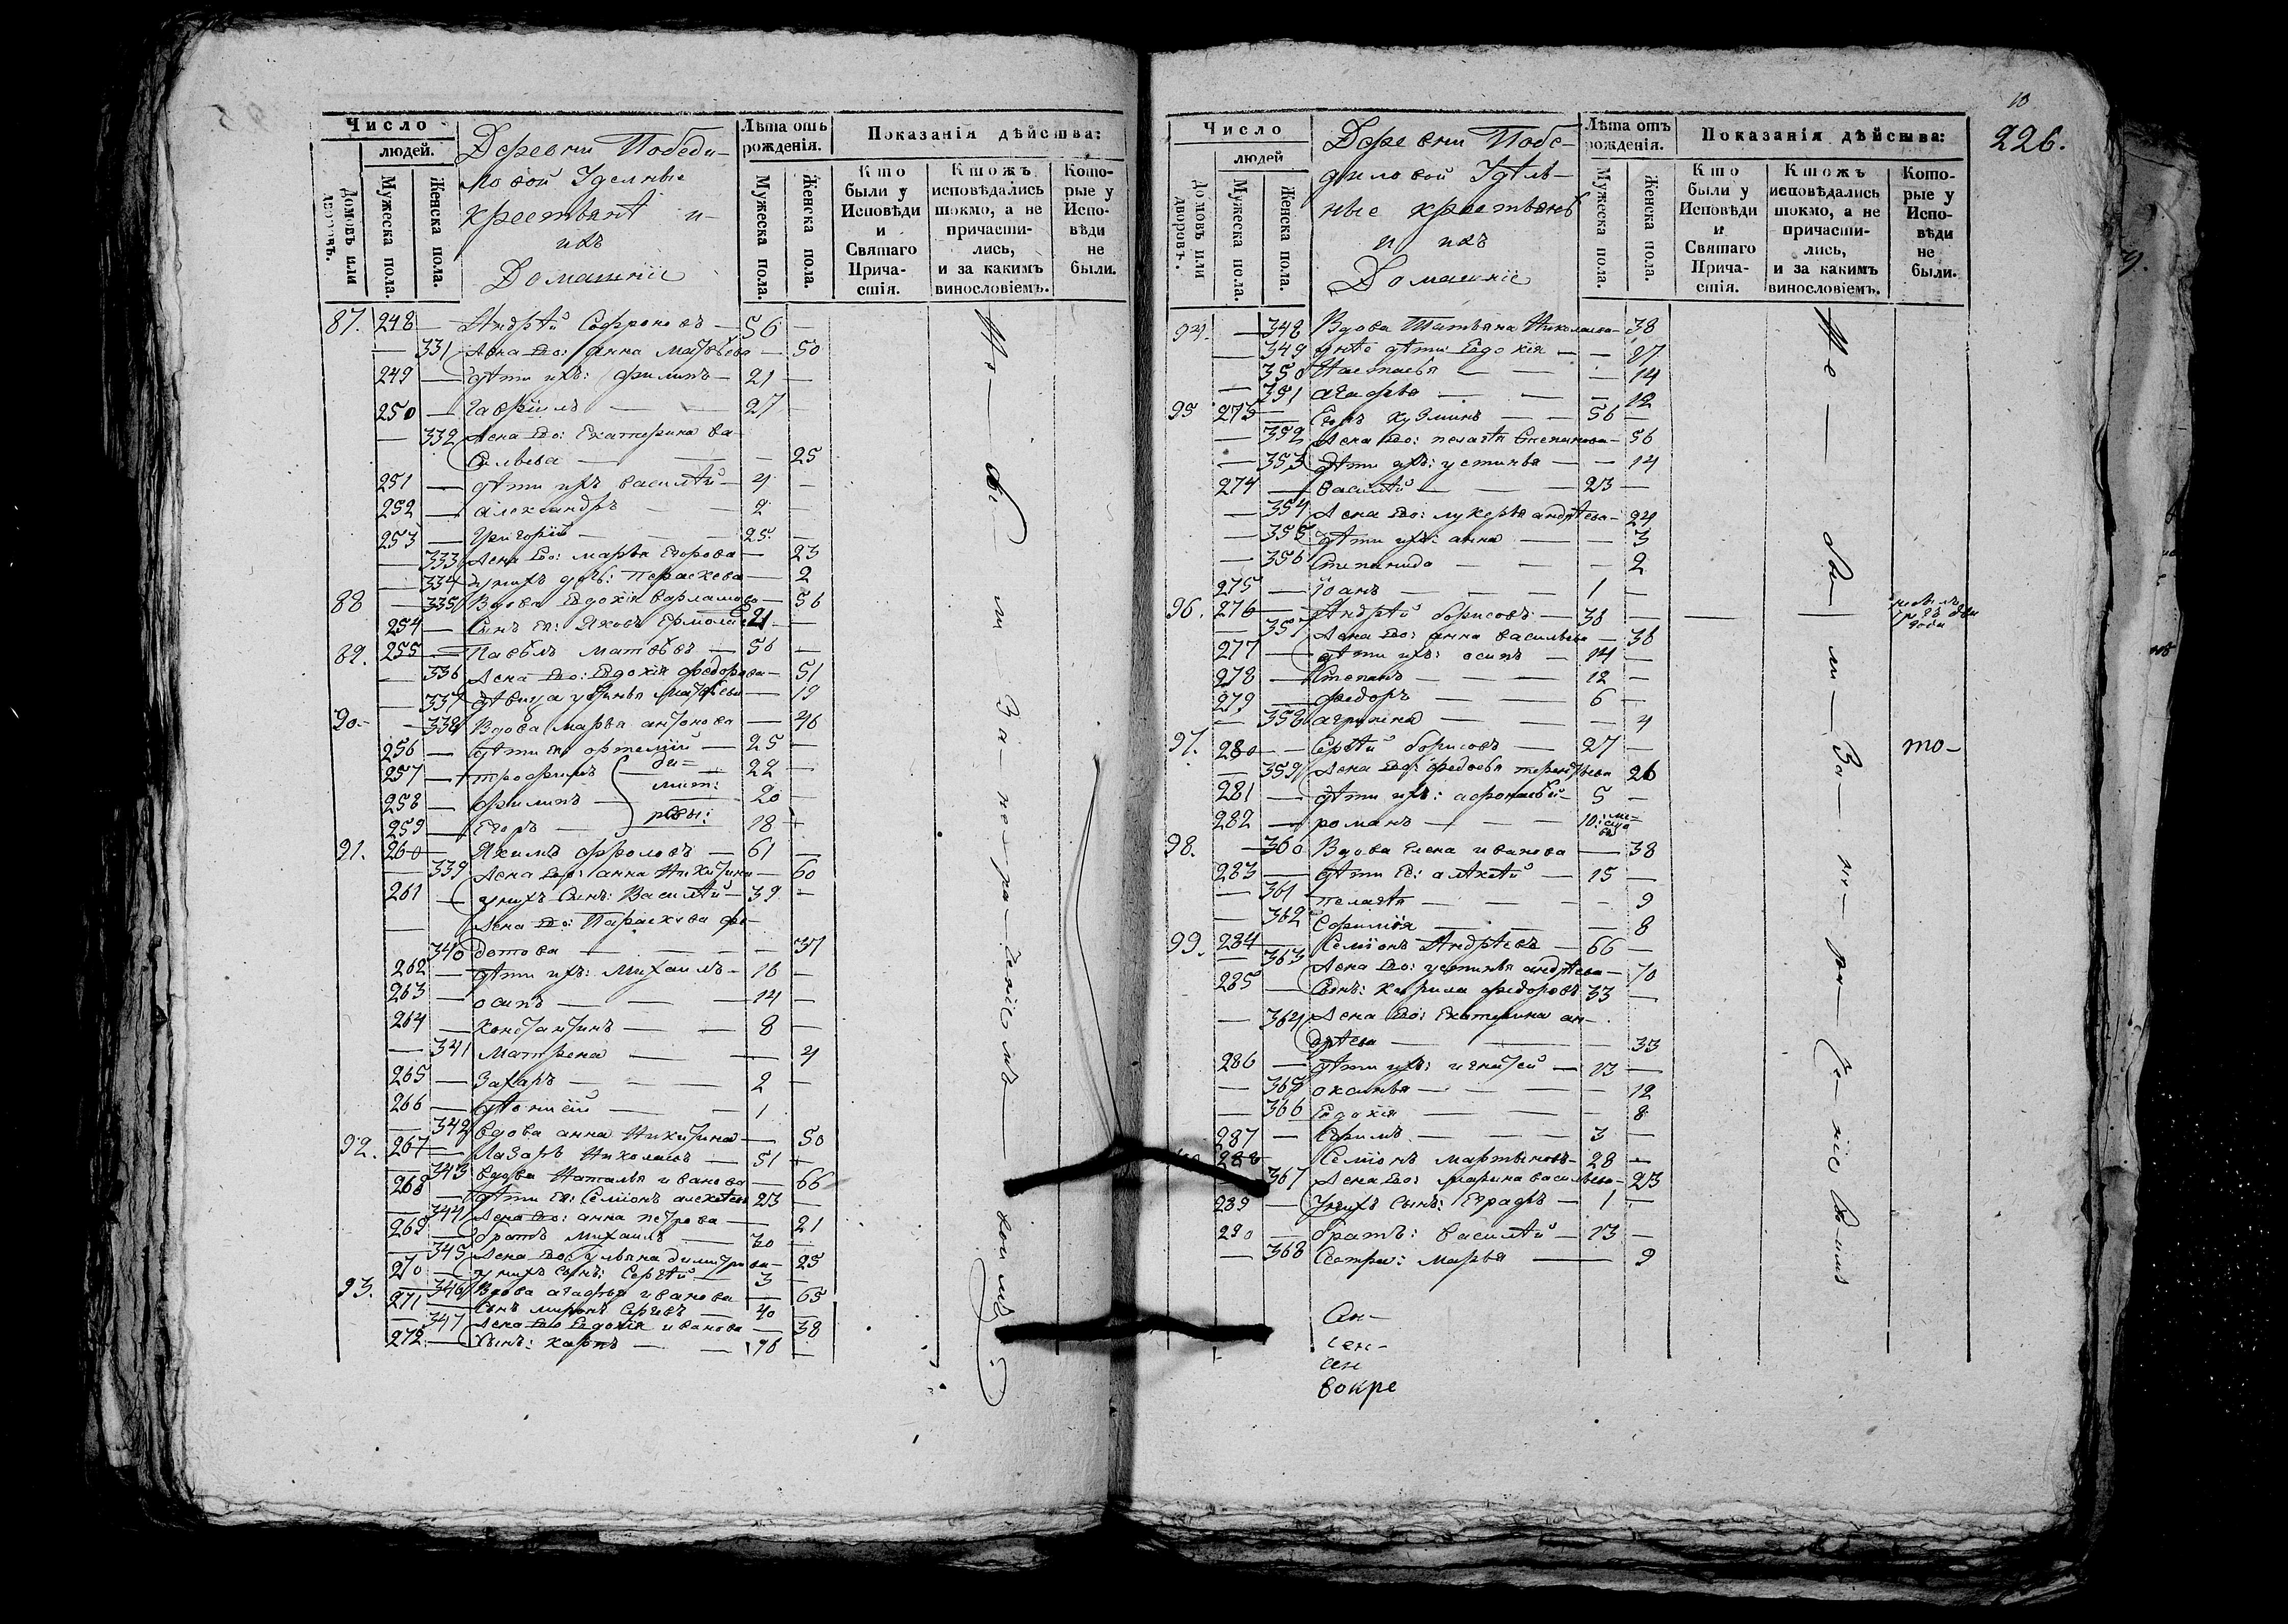 Число
людей.
Домовъ или дворовъ.
Мужеска пола.
Женска пола.
Деревни Победи-
ловой Уделные
крестьянѣ и
ихъ
Домашніе
Лѣта отъ рожденія.
Мужеска пола.
Женска пола.
Показанія дѣйства:
Кто были у Исповѣди и Святаго Причастія.
Ктожъ исповѣдались токмо, а не причастились, и за какимъ винословіемъ.
Которые у Исповѣди не были.
87. 248 — Андрѣй Софроновъ — 56 —
— 331 Жена Его: Анна Матвѣева — 50
249 — дѣти ихъ: филипъ — 21 —
250 — Гавріилъ — — 27 —
— 332 Жена Его: Екатерина Ва-
сильева — — — 25
251 — дѣти ихъ василѣй — 4 —
252 — александръ — — 2 —
253 — Григорій — — 25 —
— 333 Жена Его: марья Егорова — 23
— 334 у нихъ дочь: Параскева — 2
88 — 335 Вдова Евдокія Варламова — 56
254 — Сынъ Ея: Яковъ Ермола 21 —
89. 255 — Павѣлъ матвѣевъ — 56 —
— 336 Жена Его: Евдокія федорова — 51
— 337 дѣвица устинья Матвѣева — 19
90 — 338 Вдова Марья антонова — 46
256 — дѣти Ея артемій — 25 —
257 — трофимъ 22 —
258 — филипъ — 20 —
259 — Егоръ — 18 —
91. 260 — Якимъ фроловъ — 61 —
— 339 Жена Его: анна Никитина — 60
261 — у нихъ Сынъ: Василѣй — 39 —
— Жена Его: Параскева фе-
340 дотова — — — 37
262 — дѣти ихъ: Михаилъ — 16 —
263 — осипъ — — 14 —
264 — Константинъ — — 8 —
— 341 Матрена — — 4
265 — Захаръ — — 2 —
266 — діонисій — — 1
— 342 вдова анна Никитина — 50
92. 267 — Лазарь Николаевъ — 51 —
— 343 вдова Наталья иванова — 66
268 — дѣти Ея: Семіонъ алексѣевъ 23 —
— 344 Жена Его: анна петрова — 21
269 — братъ Михаилъ — 20 —
— 345 Жена Его: ульяна димитриева — 25
270 — у нихъ Сынъ: Сергѣй — 3 —
93. — 346 Вдова агафья иванова — 65
271 — Сынъ миронъ Сергѣевъ — 40
— 347 Жена Его Евдокія иванова — 38
272 — Сынъ: карпъ — — 16 —
Не — бы — ли — За — не — ра — деніемъ — своимъ
10
226.
Число
людей
Домовъ или дворовъ.
Мужеска пола.
Женска пола.
Деревни Побе-
диловой Удѣль-
ные крестьянѣ
и ихъ
Домашніе
Лѣта отъ рожденія.
Мужеска пола.
Женска пола.
Показанія дѣйства:
Кто были у Исповѣди и Святаго Причастія.
Ктожъ исповѣдались токмо, а не причастились, и за какимъ винословіемъ.
Которые у Исповѣди не были.
94. — 348 Вдова Татьяна Николаева — 38
— 349 у нѣе дѣти Евдокія — — 27
350 Настасья — — — 14
— 351 агафья — — — 12
95 273 — Егоръ Кузминъ — — 56 —
— 352 Жена Его: пелагѣя Степанова — 56
— 353 дѣти ихъ: устинья — — 14
274 — василѣй — — 23 —
— 354 Жена Его: лукерья андрѣева — 24
— 355 дѣти ихъ: анна — — 3
— 356 Степанида — — — 2
275 — Іоанъ — — 1 —
96. 276 — Андрѣй борисовъ — 36 —
— 357 Жена Его: анна васильева — 36
277 — дѣти ихъ: осипъ — 14 —
278 — Степанъ — — 12 —
279 — федоръ — — 6 —
— 358 агрипена — — — 4
97. 280 — Сергѣй борисовъ — 27 —
— 359 Жена Его: федосья терентьева 26
281 — дѣти ихъ: афонасѣй — 5 —
282 — романъ — — 10:
98. — 360 Вдова Елена иванова — 38
283 — дѣти Ея: алѣксѣй — 15 —
— 361 пелагѣя — — — 9
— 362 Ефимія — — — 8
99. 284 — Семіонъ Андрѣевъ — 66 —
— 363 Жена Его: устинья андрѣева — 70
285 — Сынъ: Кирила федоровъ 33 —
— 364 Жена Его: Екатерина ан-
дрѣева — — — 33
286 — дѣти ихъ: игнатей — 13 —
— 365 оксинья — — — 12
— 366 Евдокія — — — 8
287 — Ефимъ — — 3 —
288 — Семіонъ мартыновъ — 28 —
367 Жена Его: марина васильева — 23
289 — У нихъ сынъ: Еградъ — 1 —
290 — братъ: Василѣй — 13 —
— 368 Сестра: Марья — — 9
то —
Не — бы — ли — За — не — ра — де — ніемъ